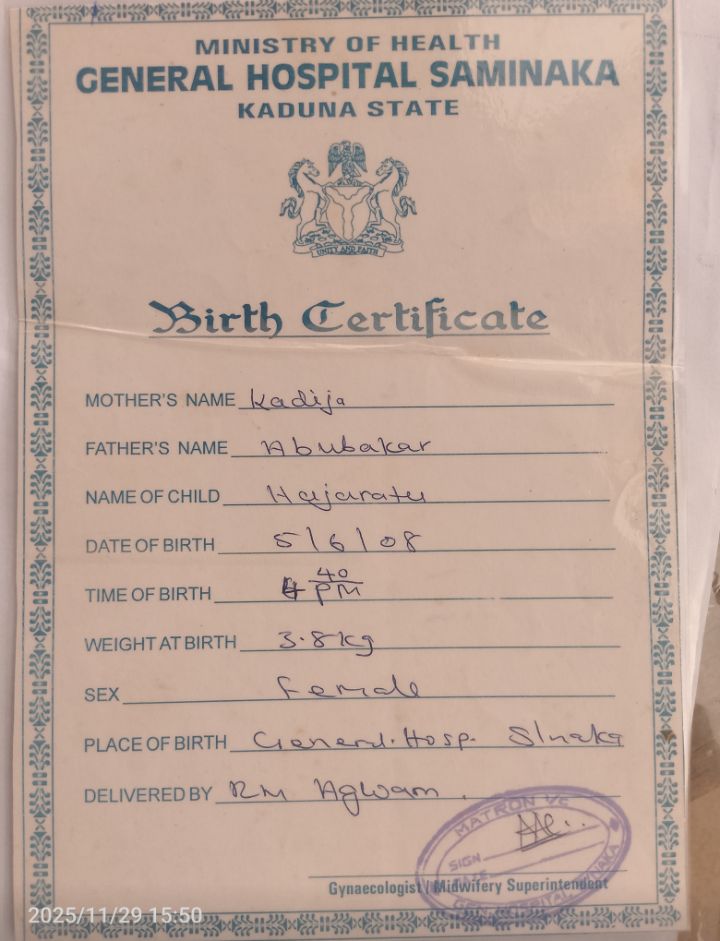 MINISTRY OF HEALTH
GENERAL HOSPITAL SAMINAKA
KADUNA STATE
UNITY AND FAITH
Birth Certificate
MOTHER'S NAME Kadija
FATHER'S NAME Abubakar
NAME OF CHILD Hajaratu
DATE OF BIRTH 5/6/08
TIME OF BIRTH 4 40 PM
WEIGHT AT BIRTH 3.8kg
SEX Female
PLACE OF BIRTH General. Hosp. S/naka
DELIVERED BY RM Agwam.
MATRON I/C
SIGN
DATE
GEN. HOSPITAL SAMINAKA
Gynaecologist / Midwifery Superintendent
2025/11/29 15:50